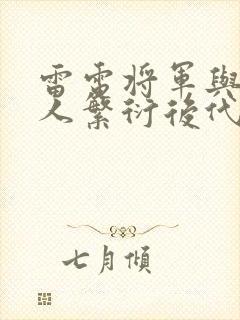 雷雷將軍與
人繁衍後代
七月傾